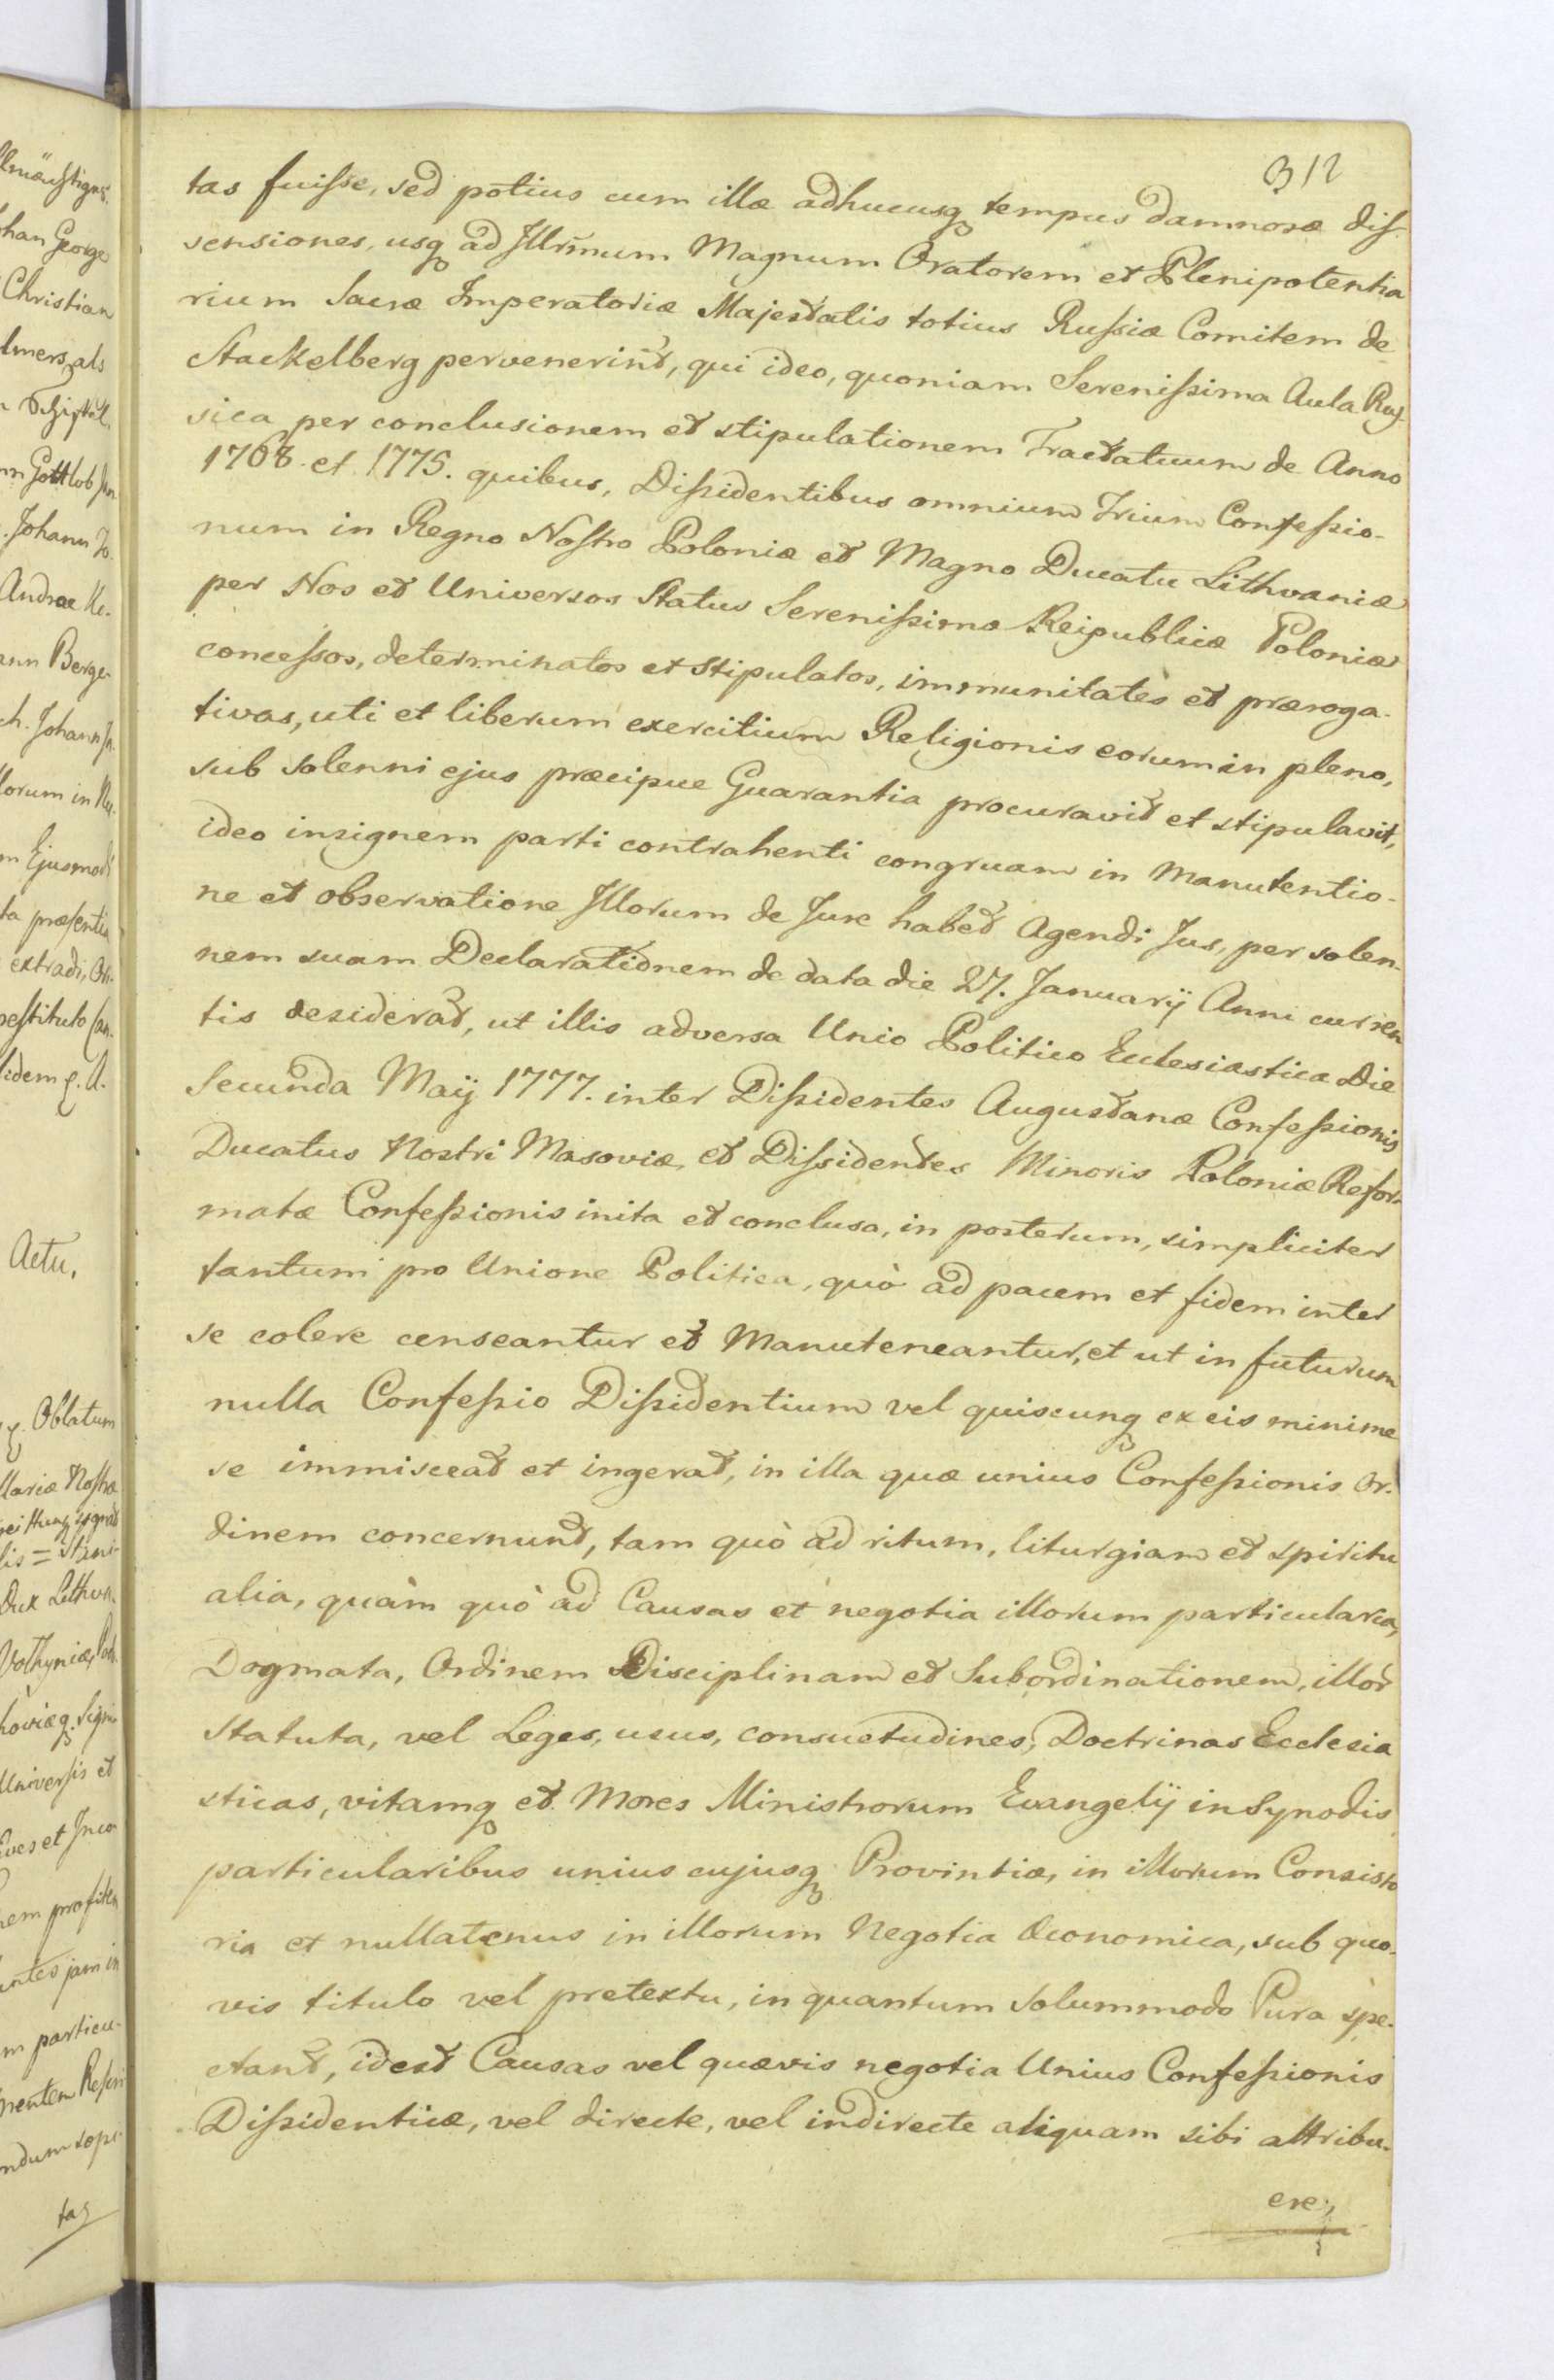 312
tas fuisse, sed potius cum illæ adhucusq tempus damnosæ dis-
sensiones, usq ad Illr̃mum Magnum Oratorem et Plenipotentia
rium Sacræ Imperatoriæ Majestatis totius Russiæ Comitem de
Stackelberg pervenerint, qui ideo, quoniam Serenissima Aula Rus-
sica per conclusionem et stipulationem Tractatuum de Anno
1768. et 1775. quibus, Dissidentibus omnium Trium Confessio-
num in Regno Nostro Poloniæ et Magno Ducatu Lithvaniæ
per Nos et Universos Status Serenissimæ Reipublicæ Poloniæ
concessos, determinatos et stipulatos, immunitates et præroga-
tivas, uti et liberum exercitium Religionis eorum in pleno,
sub solenni ejus præcipue Guarantia procuravit et stipulavit,
ideo insignem parti contrahenti congruam in manutentio-
ne et observatione Illorum de Jure habet Agendi Jus, per solen-
nem suam Declarationem de data die 27. Januarij Anni curren
tis desiderat, ut illis adversa Unio Politico Eclesiastica Die
Secunda Maij 1777. inter Dissidentes Augustanæ Confessionis
Ducatus Nostri Masoviæ, et Dissidentes Minoris Poloniæ Refor-
matæ Confessionis inita et conclusa, in posterum, simpliciter
tantum pro Unione Politica, quò ad pacem et fidem inter
se colere censeantur et Manuteneantur, et ut in futurum
nulla Confessio Dissidentium vel quiscunq ex eis minime
se immisceat et ingerat, in illa quæ unius Confessionis Or-
dinem concernunt, tam quò ad ritum, liturgiam et spiritu
alia, quàm quò ad Causas et negotia illorum particularia,
Dogmata, Ordinem Disciplinam et Subordinationem, illor
Statuta, vel Leges, usus, consuetudines, Doctrinas Ecclesia
sticas, vitamq et Mores Ministrorum Evangelij in Synodis
particularibus unius cujusq Provintiæ, in illorum Consisto
ria et nullatenus in illorum Negotia Oeconomica, sub quo-
vis titulo vel pretextu, in quantum solummodo Pura spe-
ctant, idest Causas vel quævis negotia Unius Confessionis
Dissidenticæ, vel directe, vel indirecte aliquam sibi attribu-
ere,
han George
Christian
Johann
Andreæ
Actu.
Oblatum
Universis et
tas